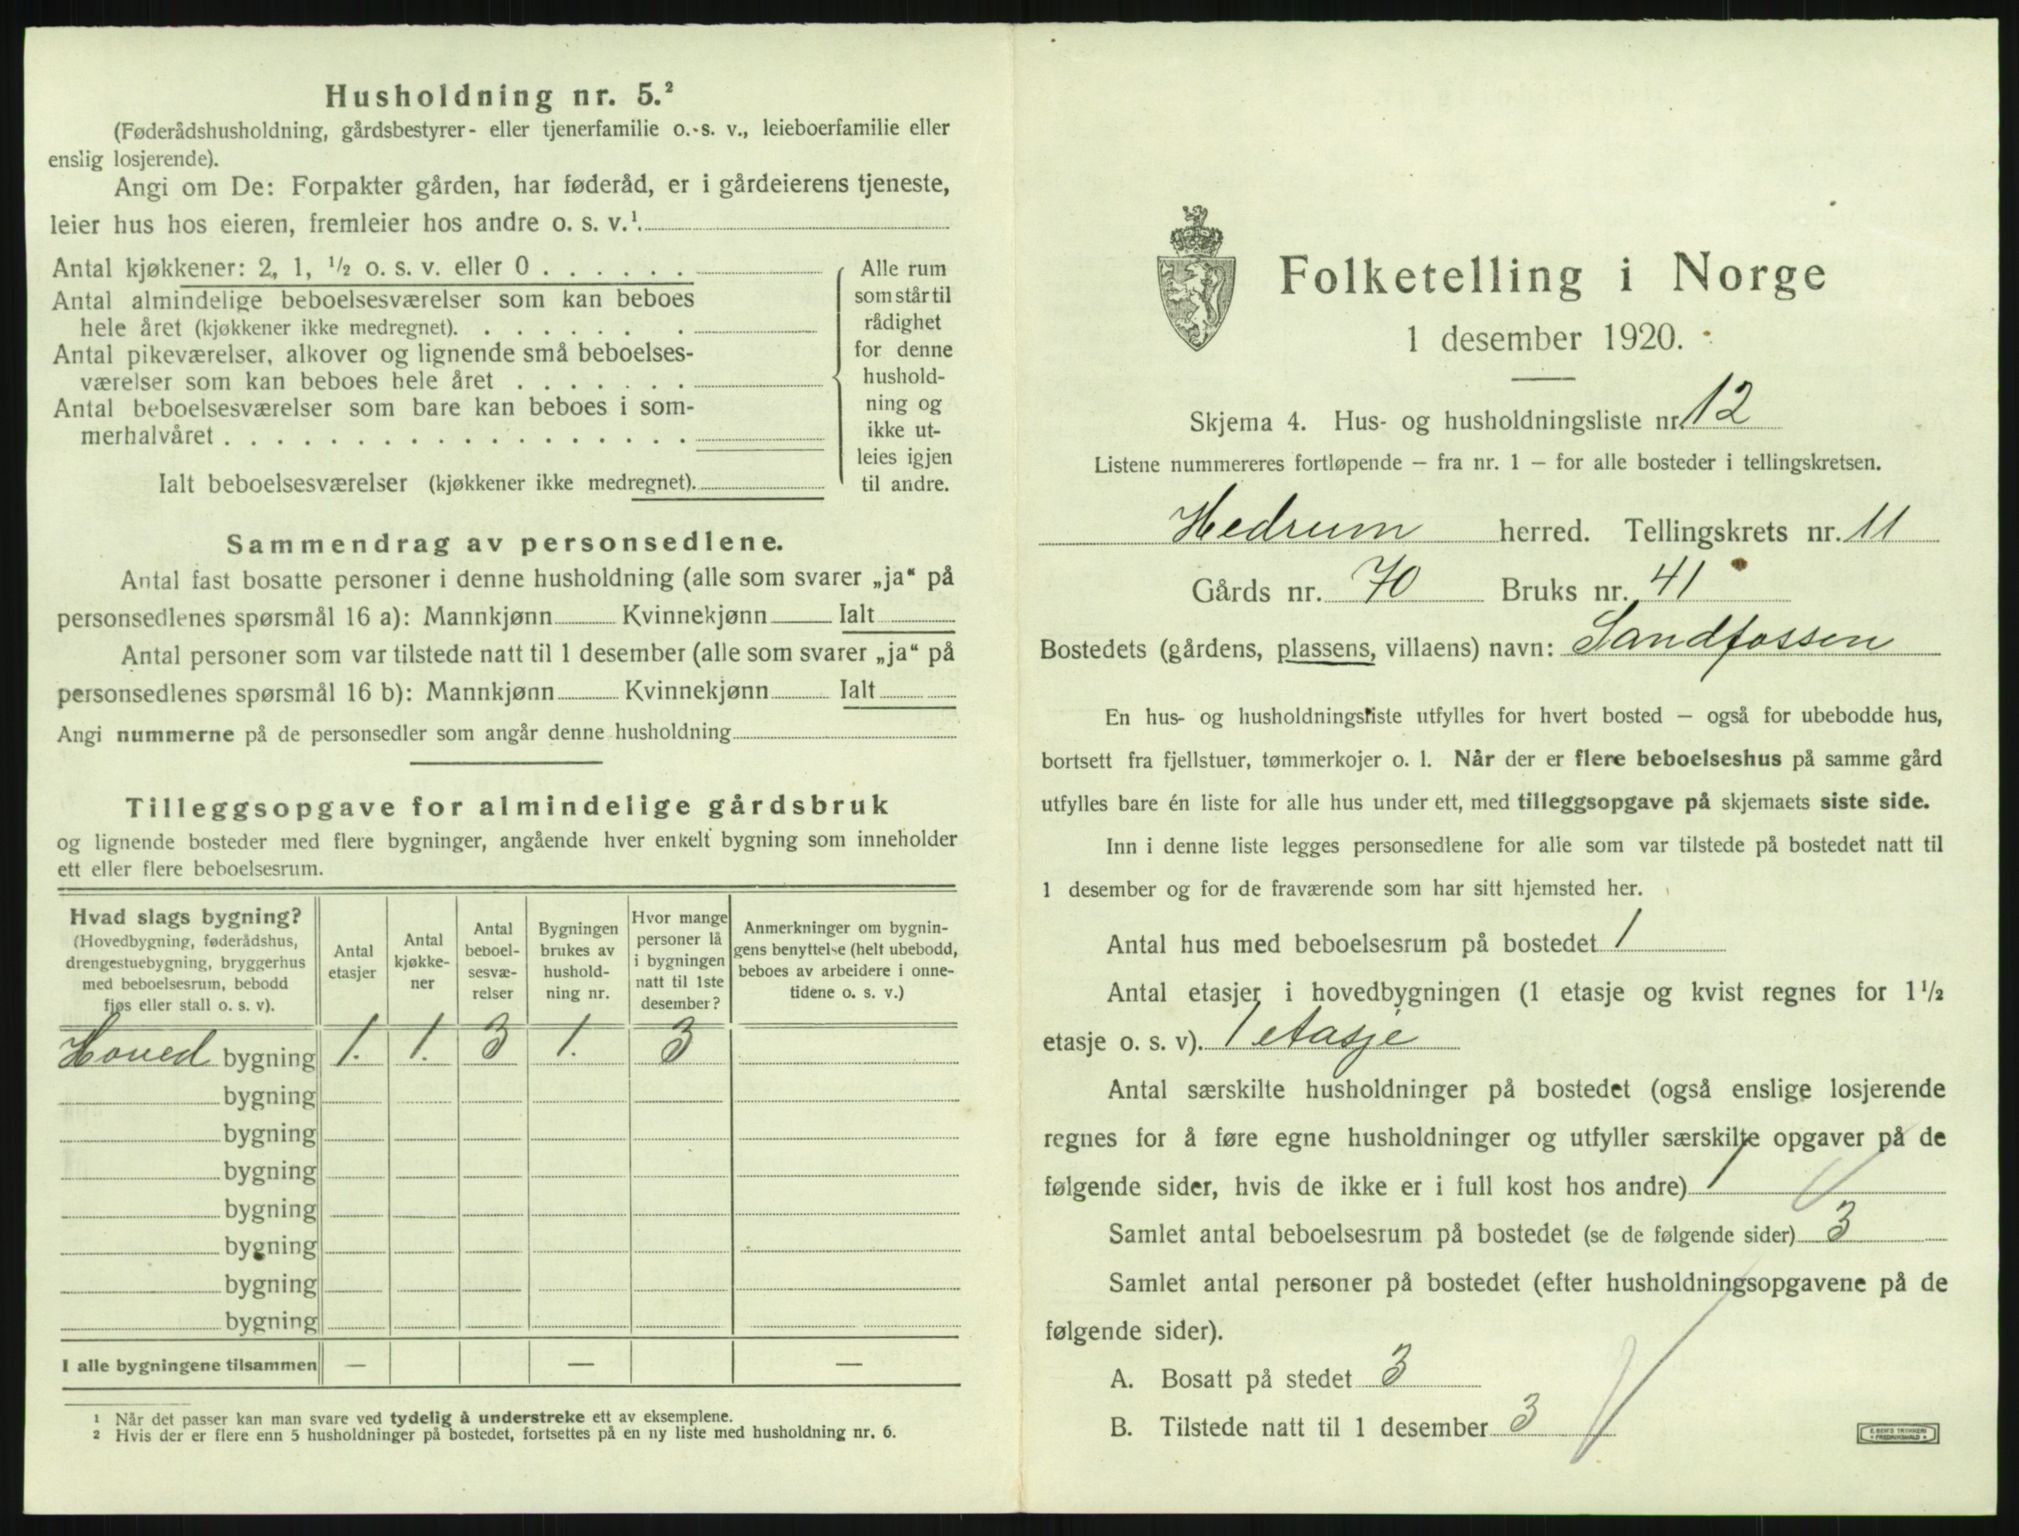 Husholdning nr. 5.²
(Føderådshusholdning, gårdsbestyrer- eller tjenerfamilie o. s. v., leieboerfamilie eller
enslig losjerende).
Angi om De: Forpakter gården, har føderåd, er i gårdeierens tjeneste,
leier hus hos eieren, fremleier hos andre o. s. v.¹.
Antal kjøkkener: 2, 1, ½ o. s. v. eller 0 . . . . . .
Antal almindelige beboelsesværelser som kan beboes
hele året (kjøkkener ikke medregnet). . . . . . . .
Antal pikeværelser, alkover og lignende små beboelses-
værelser som kan beboes hele året . . . . . . .
Antal beboelsesværelser som bare kan beboes i som-
merhalvåret . . . . . . . . . . . . . . . . . .
Ialt beboelsesværelser (kjøkkener ikke medregnet).
Alle rum
som står til
rådighet
for denne
hushold-
ning og
ikke ut-
leies igjen
til andre.
Sammendrag av personsedlene.
Antal fast bosatte personer i denne husholdning (alle som svarer „ja“ på
personsedlenes spørsmål 16 a): Mannkjønn Kvinnekjønn Ialt
Antal personer som var tilstede natt til 1 desember (alle som svarer „ja“ på
personsedlenes spørsmål 16 b): Mannkjønn Kvinnekjønn Ialt
Angi nummerne på de personsedler som angår denne husholdning
Tilleggsopgave for almindelige gårdsbruk
og lignende bosteder med flere bygninger, angående hver enkelt bygning som inneholder
ett eller flere beboelsesrum.
Hvad slags bygning?
(Hovedbygning, føderådshus,
drengestuebygning, bryggerhus
med beboelsesrum, bebodd
fjøs eller stall o. s. v).
Antal
etasjer
Antal
kjøkke-
ner
Antal
beboel-
sesvæ-
relser
Bygningen
brukes av
hushold-
ning nr.
Hvor mange
personer lå
i bygningen
natt til 1ste
desember?
Anmerkninger om bygnin-
gens benyttelse (helt ubebodd,
beboes av arbeidere i onne-
tidene o. s. v.)
Hoved bygning 1. 1. 3 1. 3
bygning
bygning
bygning
bygning
bygning
bygning
bygning
I alle bygningene tilsammen — — —
¹ Når det passer kan man svare ved tydelig å understreke ett av eksemplene.
² Hvis der er flere enn 5 husholdninger på bostedet, fortsettes på en ny liste med husholdning nr. 6.
Folketelling i Norge
1 desember 1920.
Skjema 4. Hus- og husholdningsliste nr. 12
Listene nummereres fortløpende — fra nr. 1 — for alle bosteder i tellingskretsen.
Hedrum herred. Tellingskrets nr. 11
Gårds nr. 70 Bruks nr. 41
Bostedets (gårdens, plassens, villaens) navn: Sandfossen
En hus- og husholdningsliste utfylles for hvert bosted — også for ubebodde hus,
bortsett fra fjellstuer, tømmerkojer o. l. Når der er flere beboelseshus på samme gård
utfylles bare én liste for alle hus under ett, med tilleggsopgave på skjemaets siste side.
Inn i denne liste legges personsedlene for alle som var tilstede på bostedet natt til
1 desember og for de fraværende som har sitt hjemsted her.
Antal hus med beboelsesrum på bostedet 1
Antal etasjer i hovedbygningen (1 etasje og kvist regnes for 1½
etasje o. s. v). 1 etasje
Antal særskilte husholdninger på bostedet (også enslige losjerende
regnes for å føre egne husholdninger og utfyller særskilte opgaver på de
følgende sider, hvis de ikke er i full kost hos andre) 1
Samlet antal beboelsesrum på bostedet (se de følgende sider) 3
Samlet antal personer på bostedet (efter husholdningsopgavene på de
følgende sider).
A. Bosatt på stedet 3
B. Tilstede natt til 1 desember 3
E. SEM'S TRYKKERI
FREDRIKSHALD